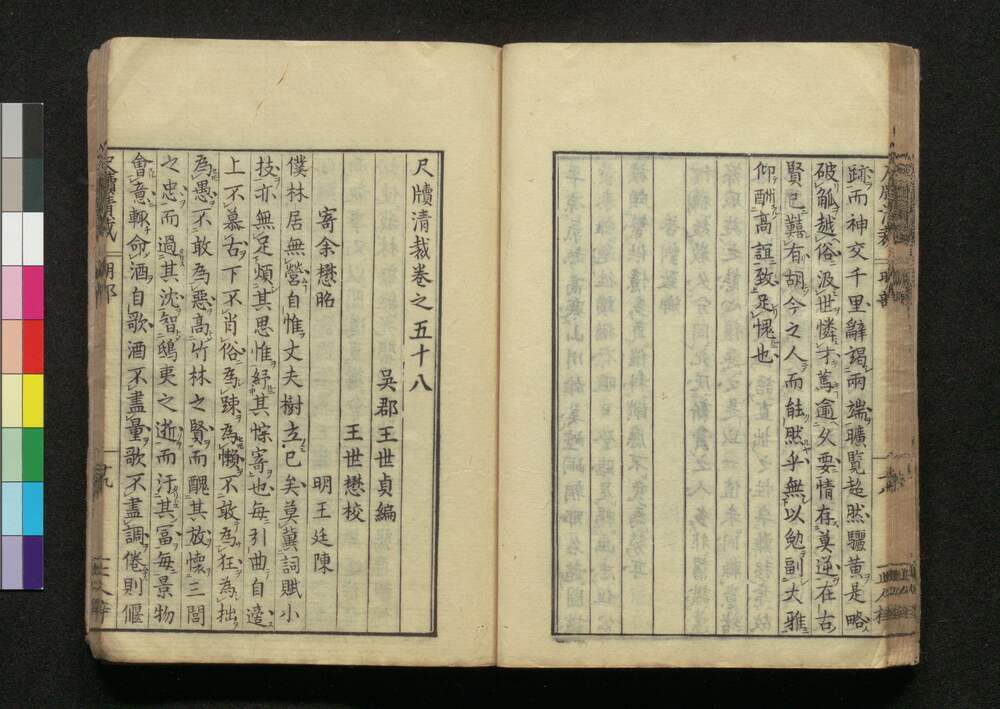 跡而神交千里辭謁兩端曠覧超然驪黄是略
破觚越俗汲世憐才篤逾久要情存莫逆在古
賢已囏有胡今之人而能然乎無以勉副大雅
仰酬高誼致足愧也
尺牘清裁巻之五十八
吳郡王世貞編
王世懋校
寄余懋昭
明王廷陳
僕林居無營自惟丈夫樹立已矣莫冀詞賦小
技亦無足煩其思惟紓其悰寄也每引曲自遶
上不慕古下不肖俗為踈為懶不敢為狂為拙
為愚不敢為惡高竹林之賢而醜其放懷三閭
之忠而過其沈智鴟夷之逝而汙其冨每景物
會意輒命酒自歌酒不盡量歌不盡調倦則偃